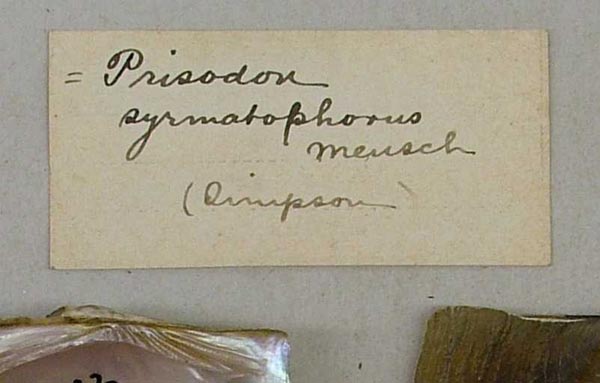 = Prisodon
syrmatophorus
meusch
(Simpson)